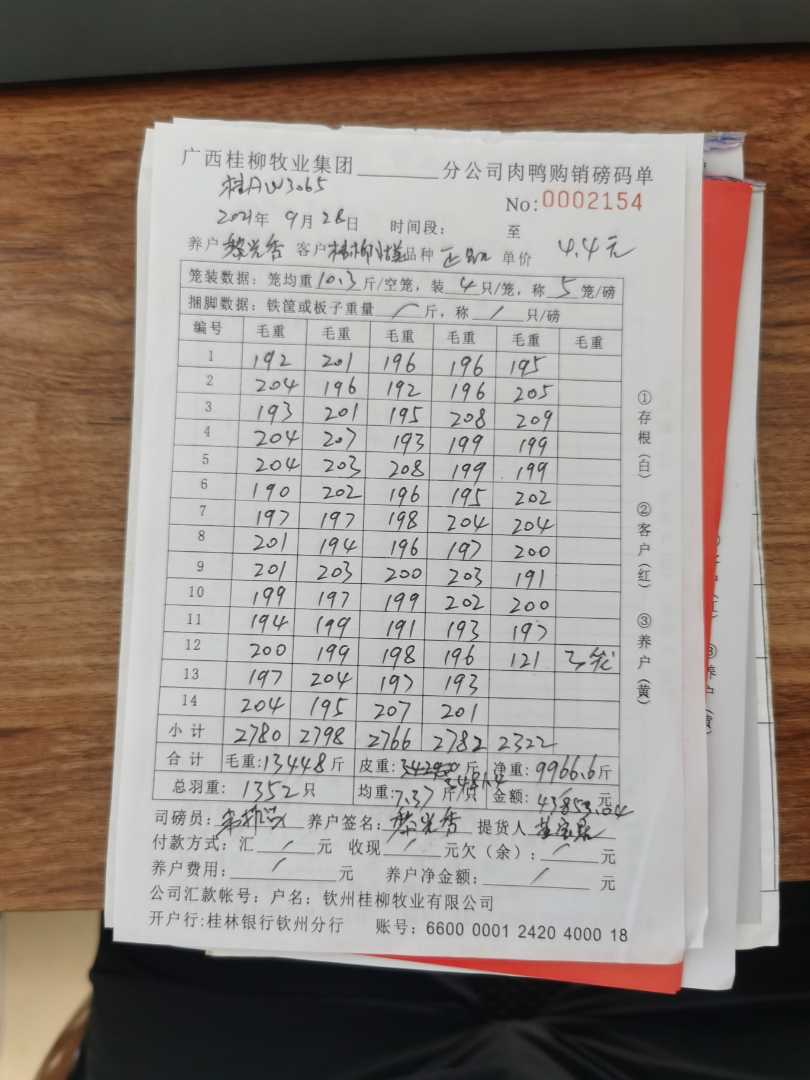 广西桂柳牧业集团________分公司肉鸭购销磅码单
桂AW3065
No:0002154
2021年 9月 28日 时间段: 至
养户 黎光香 客户 桂柳 品种 正品 单价 4.4元
笼装数据: 笼均重10.3斤/空笼, 装 4 只/笼, 称 5 笼/磅
捆脚数据: 铁筐或板子重量 / 斤, 称 / 只/磅
编号 毛重 毛重 毛重 毛重 毛重 毛重
1 192 201 196 196 195
2 204 196 192 196 205
3 193 201 195 208 209
4 204 207 193 199 199
5 204 203 208 199 199
6 190 202 196 195 202
7 197 197 198 204 204
8 201 194 196 197 200
9 201 203 200 203 191
10 199 197 199 202 200
11 194 199 191 193 197
12 200 199 198 196 121 3笼
13 197 204 197 193
14 204 195 207 201
小计 2780 2798 2766 2782 2322
合计 毛重:13448斤 皮重: 斤 净重:9966.6斤
3481.4
总羽重: 1352只 均重:7.37斤/只 金额: 43853.04元
司磅员: 养户签名: 黎光香 提货人
付款方式: 汇 / 元 收现 / 元欠(余): / 元
养户费用: / 元 养户净金额: / 元
公司汇款帐号: 户名: 钦州桂柳牧业有限公司
开户行:桂林银行钦州分行 账号: 6600 0001 2420 4000 18
①存根(白) ②客户(红) ③养户(黄)